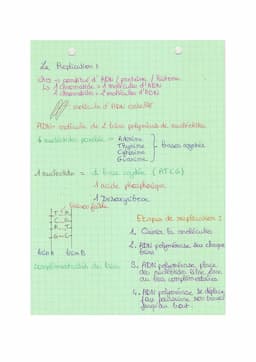 La Réplication :
chr → constitué d'ADN / protéine / histone
↳ 1 chromatide = 1 molécule d'ADN
2 chromatides = 2 molécules d'ADN
molécule d'ADN
ADN = molécule de 2 brins polymères de nucléotides
4 nucléotides possible = Adénine
Thymine
Cytosine
Guanine
bases azotées
1 nucléotide = 1 base azotée (ATCG)
1 acide phosphorique
1 Désoxyribose
liaison faible
brin A brin B
complémentarité des brins
Etapes de réplication :
1. Ouvrir la molécule
2. ADN polymérase sur chaque brin
3. ADN polymérase place des nucléotides libre face au brin complémentaire
4. ADN polymérase se déplace
jusqu'au bout.